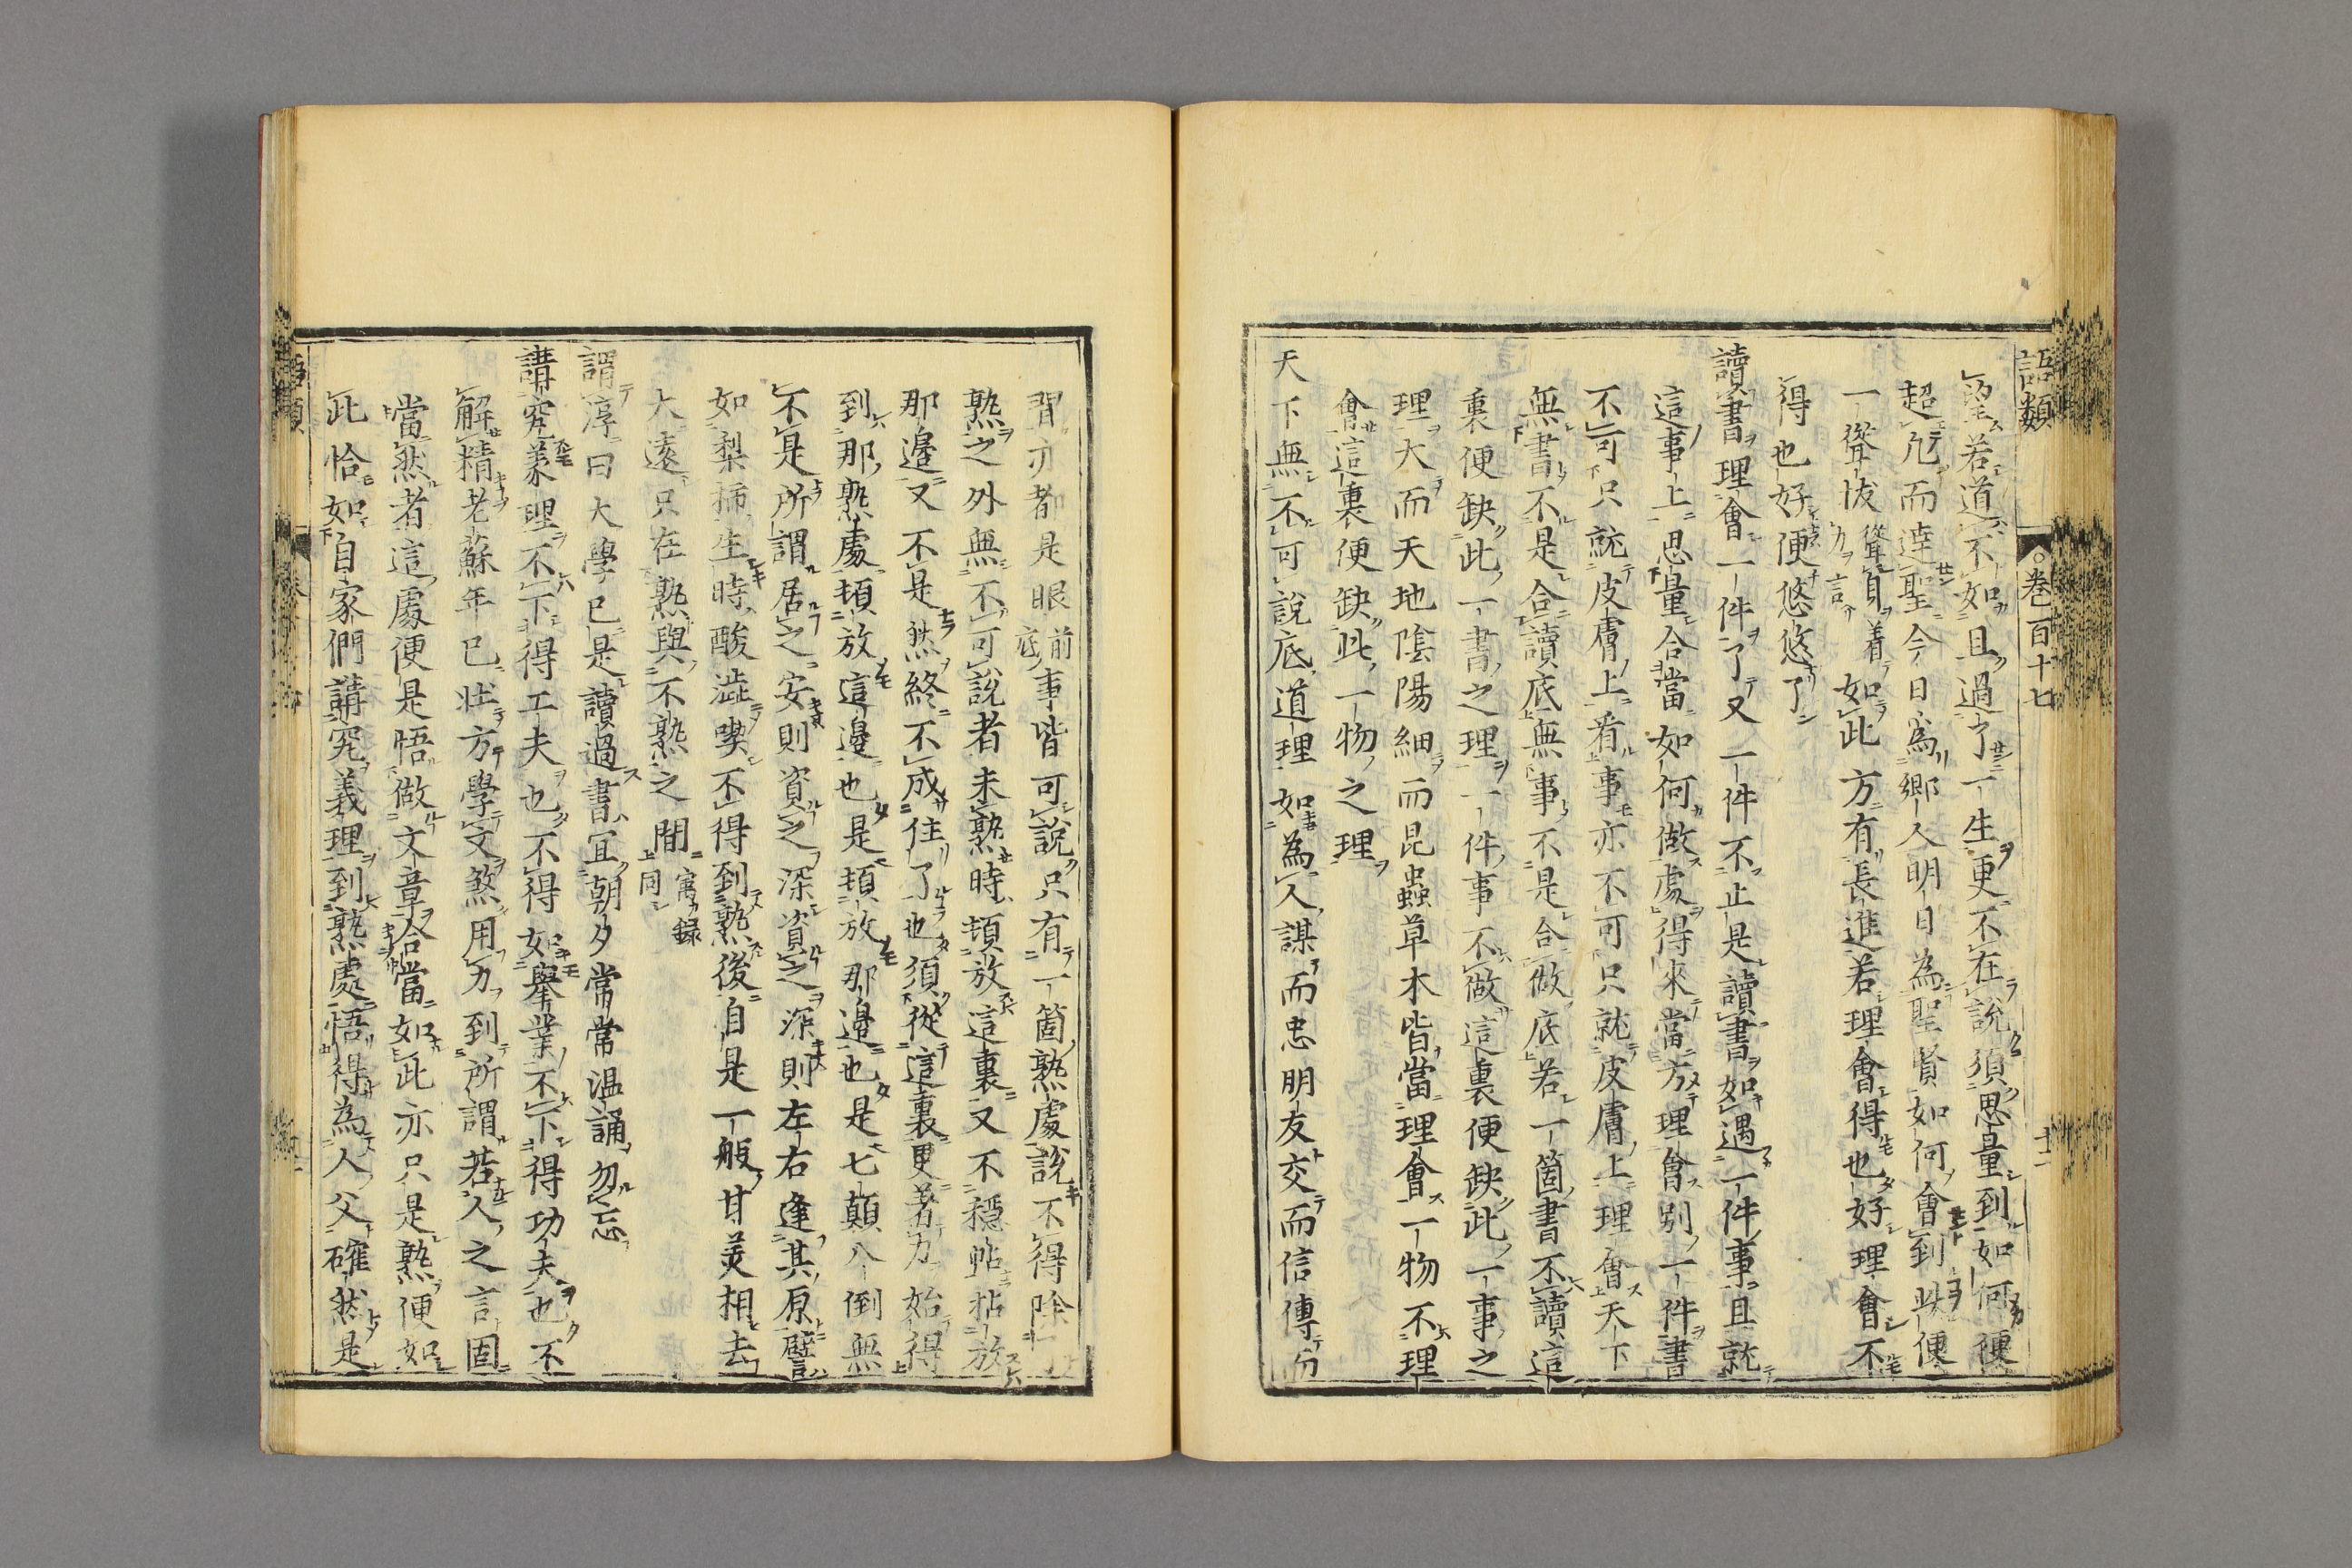 語類 ○卷百十七 十二
望若道不如且過了一生更不在說須思量到如何便
超凡而達聖今日爲鄉人明日為聖賢如何會到此便
一聳拔聳身着力言如此方有長進若理會得也好理會不
得也好便悠悠了
讀書理會一件了又一件不止是讀書如遇一件事且就
這事上思量合當如何做處得來當方理會別一件書
不可只就皮膚上看事亦不可只就皮膚上理會天下
無書不是合讀底無事不是合做底若一箇書不讀這
裏便缺此一書之理一件事不做這裏便缺此一事之
理大而天地陰陽細而昆蟲草木皆當理會一物不理
會這裏便缺此一物之理
天下無不可說底道理如為人謀而忠朋友交而信傳
習亦都是眼前底事皆可說只有一箇熟處說不得除
熟之外無不可說者未熟時頓放這裏又不穩帖拈放
那邊又不是然終不成住了也須從這裏更著力始得
到那熟處頓放這邊也是頓放那邊也是七顛八倒無
不是所謂居之安則資之深資之深則左右逢其原譬
如梨柹生時酸澁喫不得到熟後自是一般甘美相去
大遠只在熟與不熟之間寓録同
謂淳曰大學已是讀過書宜朝夕常常溫誦勿忘
講究義理不下得工夫也不得如舉業不下得功夫也不
解精老蘇年已壯方學文煞用力到所謂若人之言固
當然者這處便是悟做文章合當如此亦只是熟便如
此恰如自家們講究義理到熟處悟得為人父確然是
語類